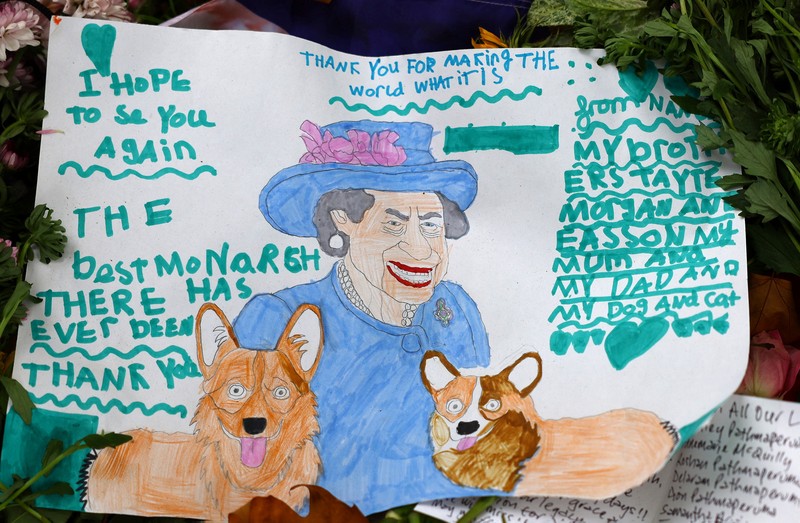 I HOPE
to se you
AgAin
THE
best MoNARGH
THERE HAS
EVER BEEN
THANK You
THANK YOU FOR MAKING THE
World WHAT iT IS
from
MY brot
ERS TAYTE
MORGAN AN
EASSON MY
MUM AND
MY DAD AND
MY DOG AND CAt
All Our L
Pathmaperuma
McQuilly
Roshan Pathmaperuma
Delavan Pathmaperuma
Dion Pathmaperuma
Samantha